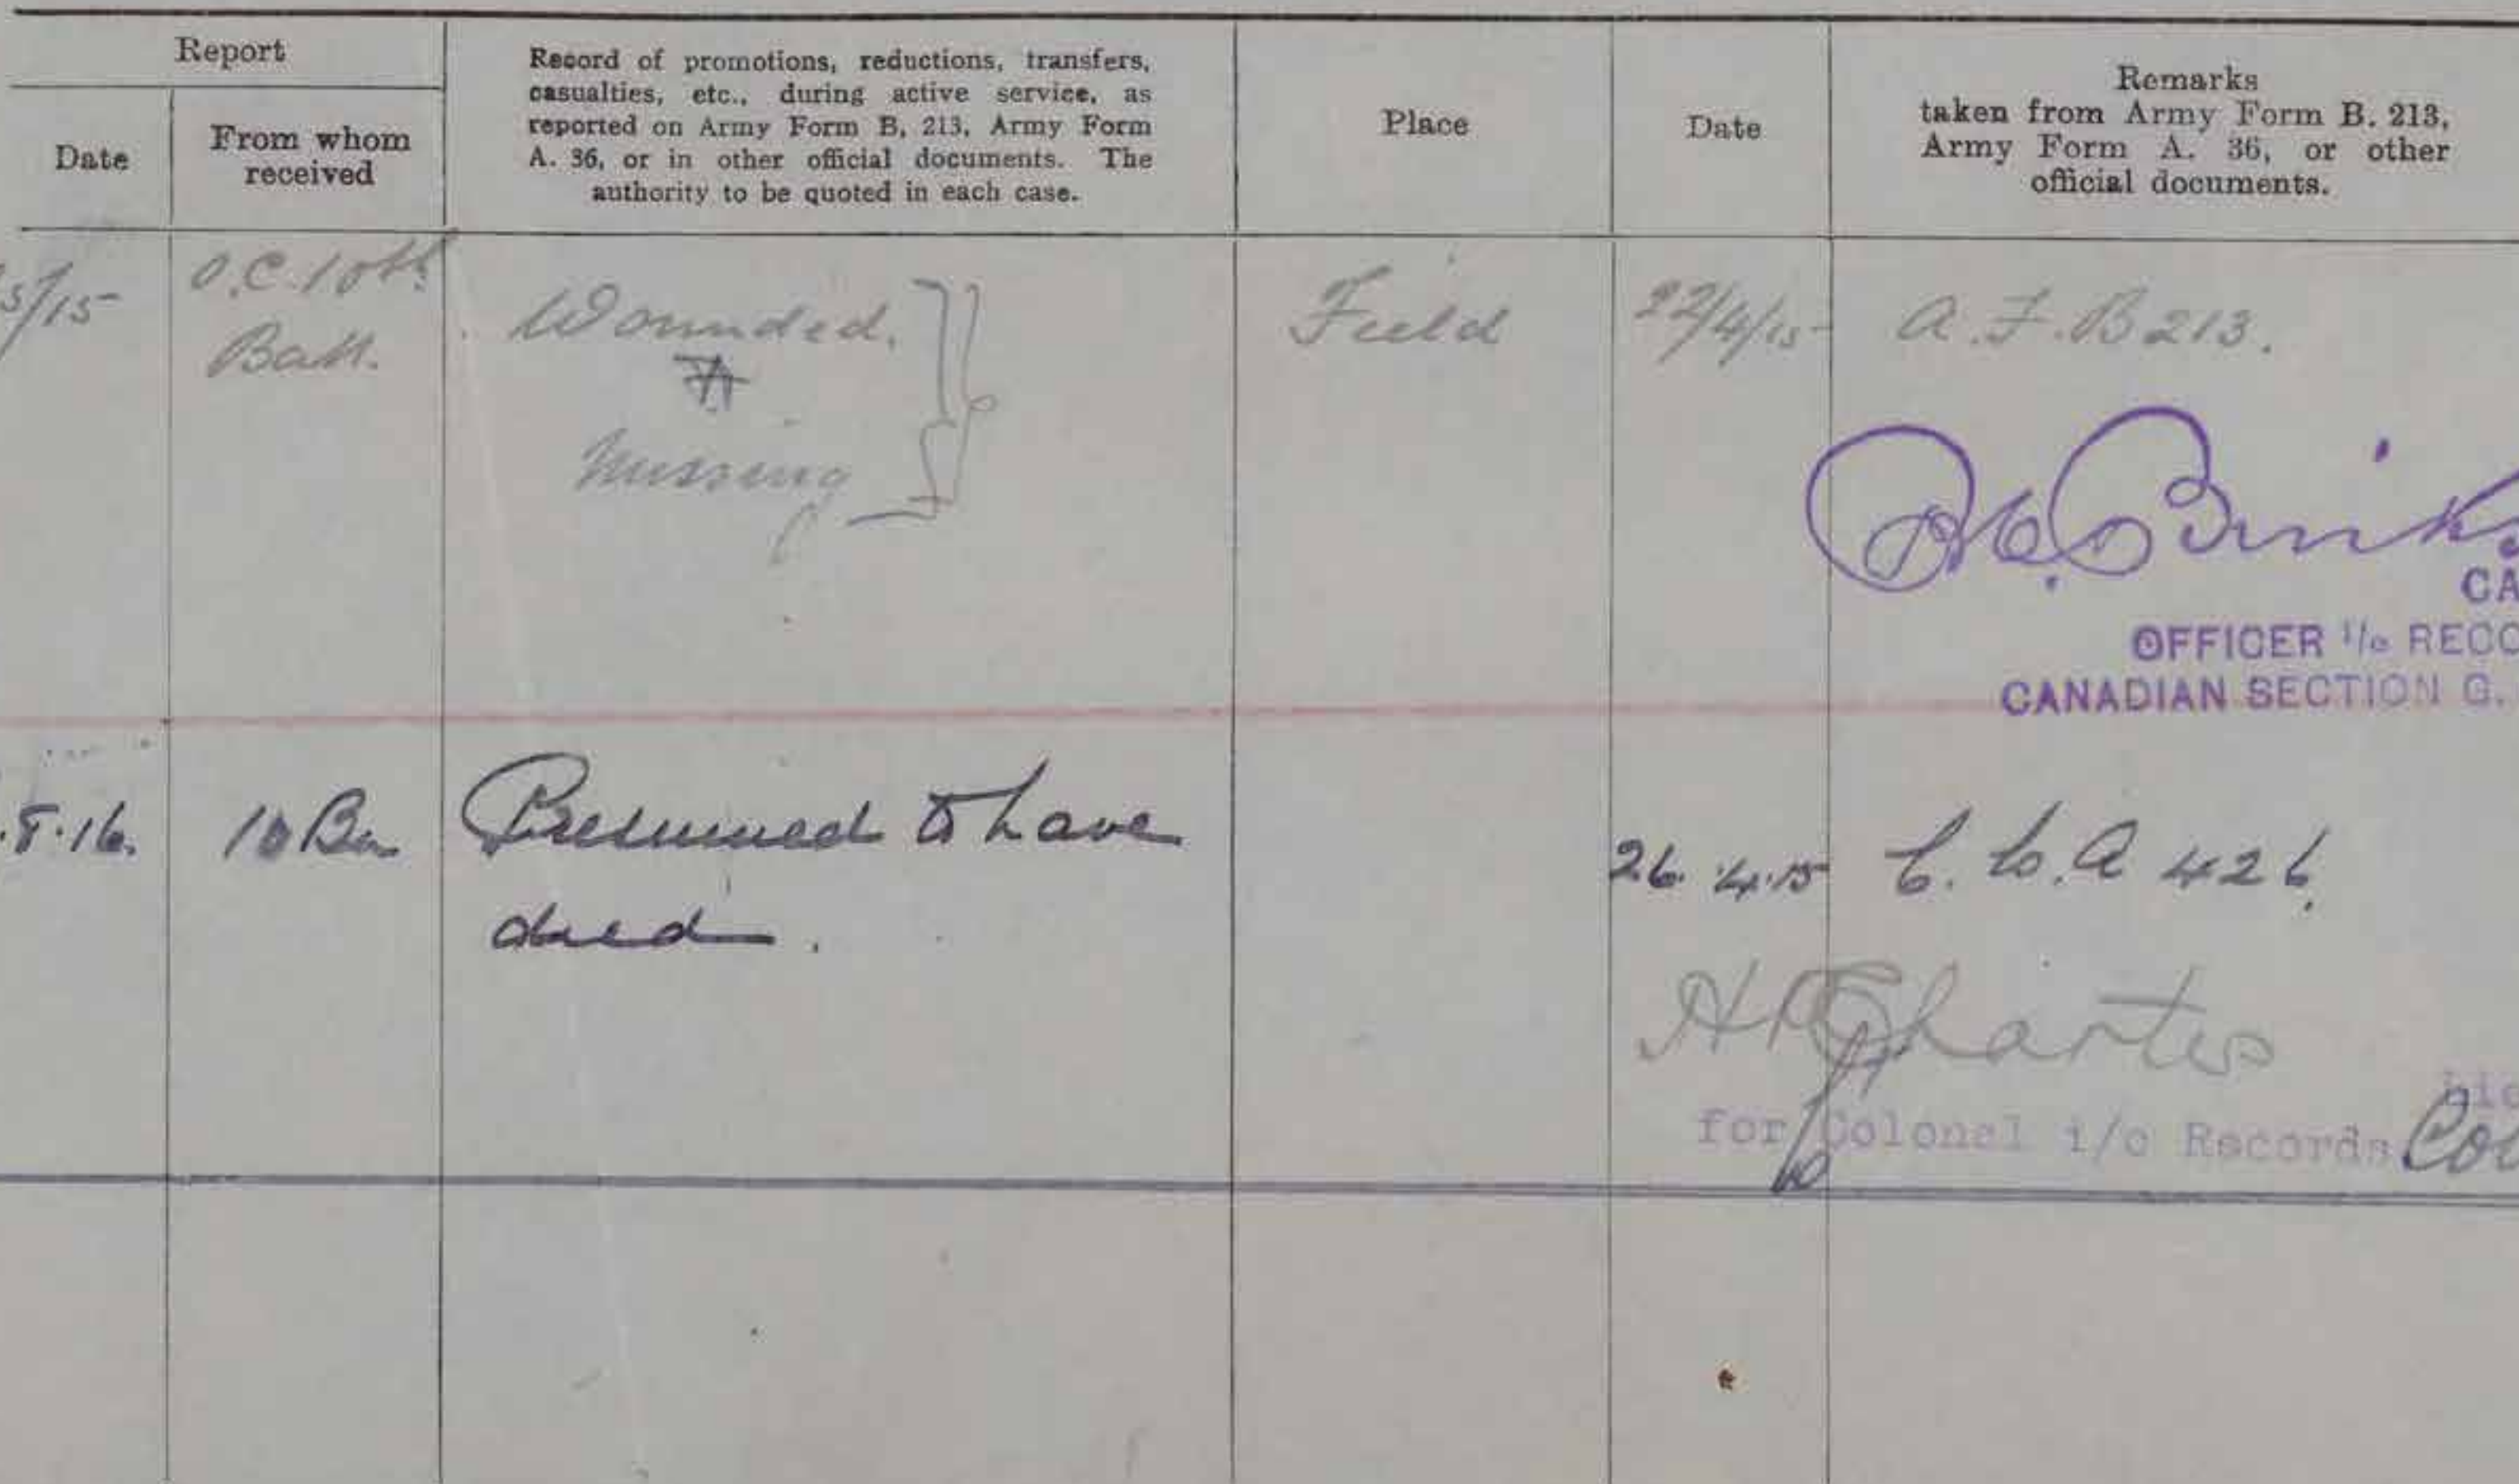 Report
Date
From whom
received
Record of promotions, reductions, transfers,
casualties, etc., during active service, as
reported on Army Form B. 213, Army Form
A. 36, or in other official documents. The
authority to be quoted in each case.
Place
Date
Remarks
taken from Army Form B. 213,
Army Form A. 36, or other
official documents.
5/15
O.C. 10th
Batt.
Wounded.
Missing
Field
22/4/15
A.F.B 213.
CA
OFFICER i/c RECO
CANADIAN SECTION G.
.8.16.
10 Bn
Presumed to have
died.
26.4.15
C.C.A 426.
for Colonel i/c Records